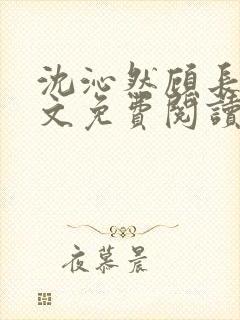 沈沁然顾長
文免費閱讀
夜慕晨